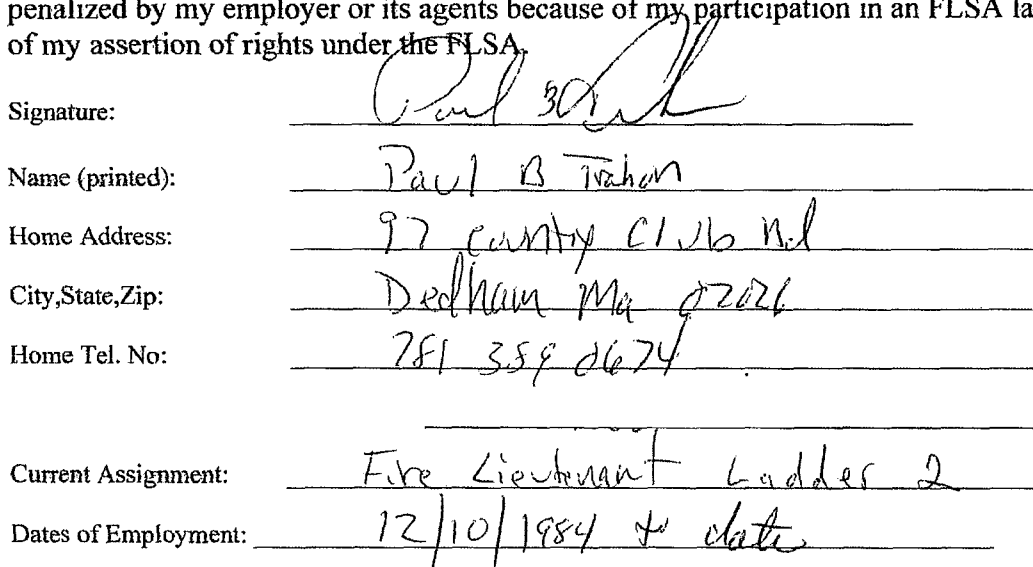 penalized by my employer or its agents because of my participation in an FLSA la
of my assertion of rights under the FLSA.
Signature: Paul B
Name (printed): Paul B Trahan
Home Address: 97 Country Club Rd
City,State,Zip: Dedham Ma 02026
Home Tel. No: 781 0674
Current Assignment: Fire Lieutenant Ladder 2
Dates of Employment: 12/10/1984 to date